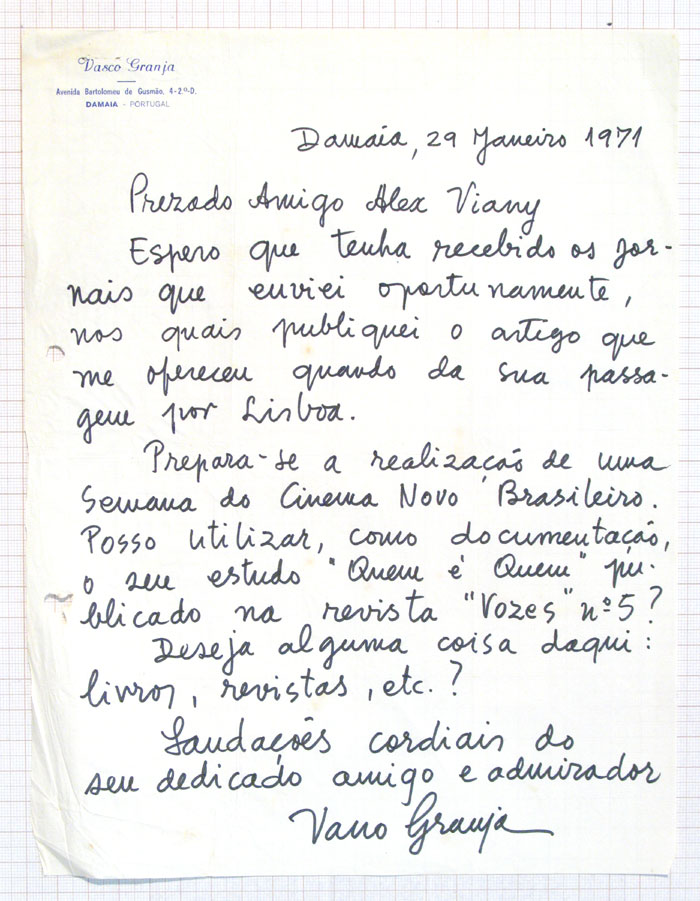 Vasco Granja
Avenida Bartolomeu de Gusmão, 4-2.º-D.
DAMAIA - PORTUGAL
Damaia, 29 Janeiro 1971
Prezado Amigo Alex Viany
Espero que tenha recebido os jor-
nais que enviei oportunamente,
nos quais publiquei o artigo que
me ofereceu quando da sua passa-
gem por Lisboa.
Prepara-se a realização de uma
Semana do Cinema Novo Brasileiro.
Posso utilizar, como documentação,
o seu estudo "Quem é Quem" pu-
blicado na revista "Vozes" nº 5?
Deseja alguma coisa daqui:
livros, revistas, etc.?
Saudações cordiais do
seu dedicado amigo e admirador
Vasco Granja